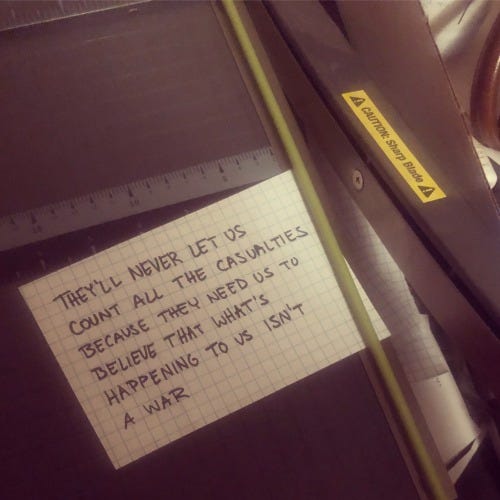 THEY'LL NEVER LET US
COUNT ALL THE CASUALTIES
BECAUSE THEY NEED US TO
BELIEVE THAT WHAT'S
HAPPENING TO US ISN'T
A WAR
CAUTION: Sharp Blade